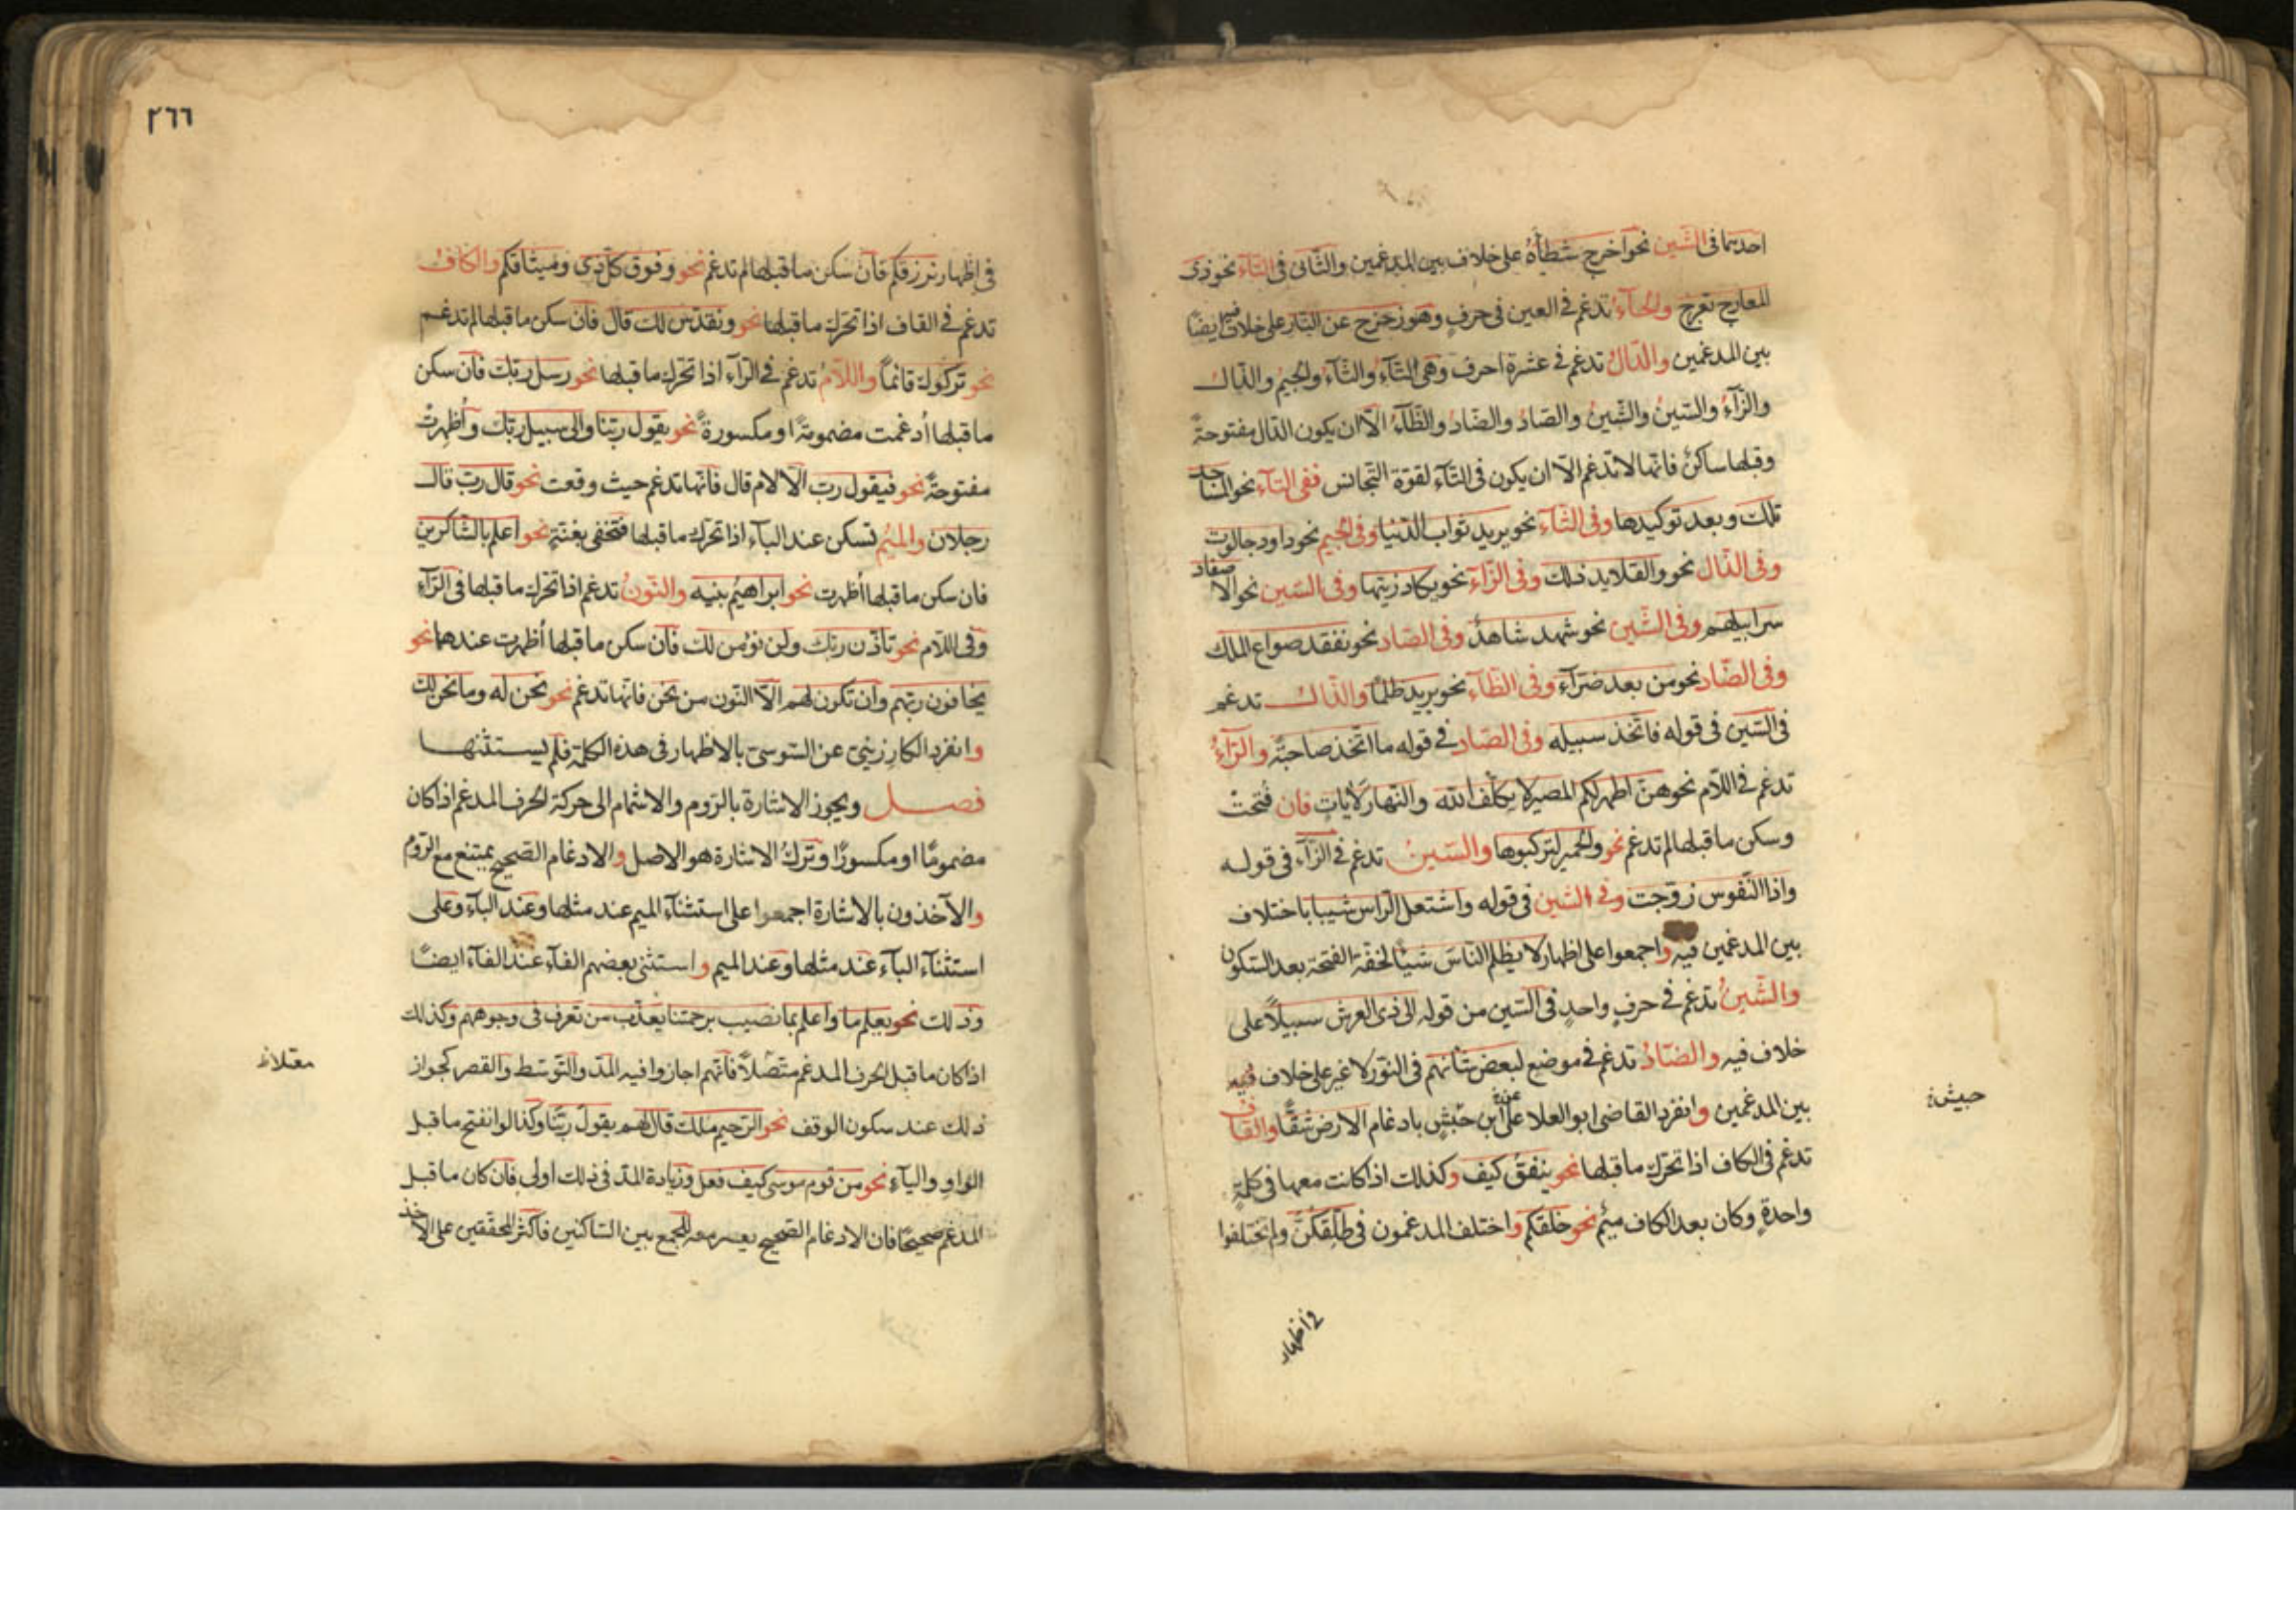 احديهما فى الشين نحو اخرج شطأه على خلاف بين المدغمين والثانى فى التاء نحو ذى
المعارج تعرج والحاء تدغم فى العين فى حرف وهو زحزح عن النار على خلاف فيه ايضا
بين المدغمين والدال تدغم فى عشرة احرف وهى التاء والثاء والجيم والذال
والزاء والسين والشين والصاد والضاد والظاء الا ان يكون الدال مفتوحة
وقبلها ساكن فانها لا تدغم الا ان يكون فى التاء لقوة التجانس ففى التاء نحو المساجد
تلك وبعد توكيدها وفى الثاء نحو يريد ثواب الدنيا وفى الجيم نحو داود جالوت
وفى الذال نحو والقلايد ذلك وفى الزاء نحو يكاد زيتها وفى السين نحو الاصفاد
سرابيلهم وفى الشين نحو شهد شاهد وفى الصاد نحو نفقد صواع الملك
وفى الضاد نحو من بعد ضراء وفى الظاء نحو يريد ظلما والذال تدغم
فى السين فى قوله فاتخذ سبيله وفى الصاد فى قوله ما اتخذ صاحبة والراء
تدغم فى اللام نحو هن اطهر لكم المصير لا يكلف الله والنهار لايات فان فتحت
وسكن ما قبلها لم تدغم نحو والحمير لتركبوها والسين تدغم فى الزاء فى قوله
واذا النفوس زوجت وفى الشين فى قوله واشتعل الراس شيبا باختلاف
بين المدغمين فيه واجمعوا على اظهار لا يظلم الناس شيئا لخفة الفتحة بعد السكون
والشين تدغم فى حرف واحد فى السين من قوله الى ذى العرش سبيلا على
خلاف فيه والضاد تدغم فى موضع لبعض شأنهم فى النور لا غير على خلاف فيه
بين المدغمين وانفرد القاضى ابو العلا عن ابن حبش بادغام الارض شقا والقاف
حبش
تدغم فى الكاف اذا تحرك ما قبلها نحو ينفق كيف وكذلك اذا كانت معها فى كلمة
واحدة وكان بعد الكاف ميم نحو خلقكم واختلف المدغمون فى طلقكن ولم يختلفوا
فى اظهار
٢٦٦
فى اظهار نرزقكم فان سكن ما قبلها لم تدغم نحو وفوق كل ذى وميثاقكم والكاف
تدغم فى القاف اذا تحرك ما قبلها نحو ونقدس لك قال فان سكن ما قبلها لم تدغم
نحو تركوك قائما واللام تدغم فى الراء اذا تحرك ما قبلها نحو رسل ربك فان سكن
ما قبلها أدغمت مضمومة او مكسورة نحو يقول ربنا والى سبيل ربك وأظهرت
مفتوحة نحو فيقول رب الا لام قال فانها تدغم حيث وقعت نحو قال رب قال
رجلان والميم تسكن عند الباء اذا تحرك ما قبلها فتخفى بغنة نحو اعلم بالشاكرين
فان سكن ما قبلها أظهرت نحو ابراهيم بنيه والنون تدغم اذا تحرك ما قبلها فى الراء
وفى اللام نحو تاذن ربك ولن نؤمن لك فان سكن ما قبلها أظهرت عندهما نحو
يخافون ربهم وان تكون لهم الا النون من نحن فانها تدغم نحو نحن له وما نحن لك
وانفرد الكارزينى عن السوسى بالاظهار فى هذه الكلمة فلم يستثنها
فصل ويجوز الاشارة بالروم والاشمام الى حركة الحرف المدغم اذا كان
مضموما او مكسورا وترك الاشارة هو الاصل والادغام الصحيح يمتنع مع الروم
والآخذون بالاشارة اجمعوا على استثناء الميم عند مثلها وعند الباء وعلى
استثناء الباء عند مثلها وعند الميم واستثنى بعضهم الفاء عند الفاء ايضا
وذلك نحو يعلم ما واعلم بما نصيب برحمتنا يعذب من تعرف فى وجوههم وكذلك
اذا كان ما قبل الحرف المدغم متصلا فانهم اجازوا فيه المد والتوسط والقصر كجواز
ذلك عند سكون الوقف نحو الرحيم ملك قال لهم يقول ربنا وكذا لو انفتح ما قبل
الواو والياء نحو من قوم موسى كيف فعل وزيادة المد فى ذلك اولى فان كان ما قبل
المدغم صحيحا فان الادغام الصحيح يعسر معه للجمع بين الساكنين فاكثر المحققين على الاخذ